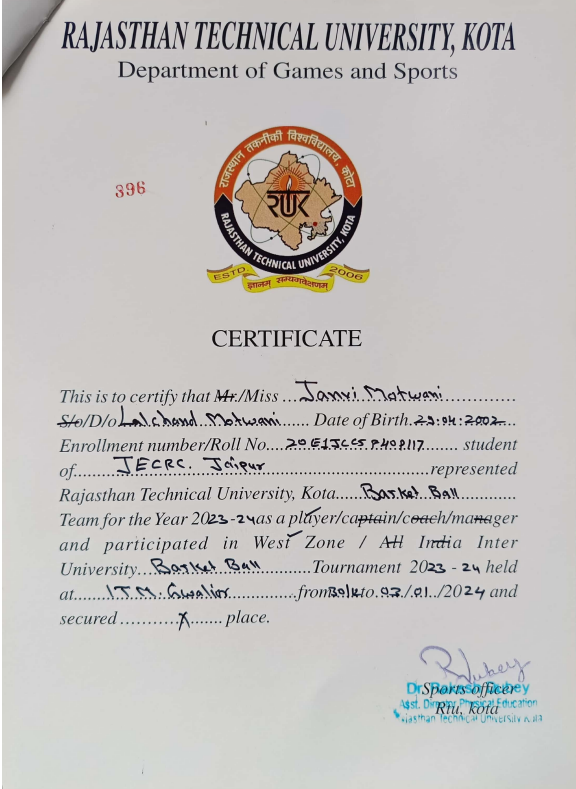 RAJASTHAN TECHNICAL UNIVERSITY, KOTA
Department of Games and Sports
396
राजस्थान तकनीकी विश्वविद्यालय, कोटा
RTU
RAJASTHAN TECHNICAL UNIVERSITY, KOTA
ESTD. 2006
ज्ञानम् सम्यगवेक्षणम्
CERTIFICATE
This is to certify that Mr./Miss ...Janvi Motwani..............
S/o/D/o Lalchand Motwani...... Date of Birth.29:04:2002...
Enrollment number/Roll No....20E1JCCS P40P117....... student
of........JECRC. Jaipur.................................represented
Rajasthan Technical University, Kota.....Basket Ball...........
Team for the Year 2023-24 as a player/captain/coach/manager
and participated in West Zone / All India Inter
University...Basket Ball..........Tournament 2023 - 24 held
at........ITM. Gwalior.............from to.03./.01../2024 and
secured ...........X....... place.
Dr. Rakesh Dubey
Sports officer
Asst. Director Physical Education
Rtu, kota
Rajasthan Technical University Kota